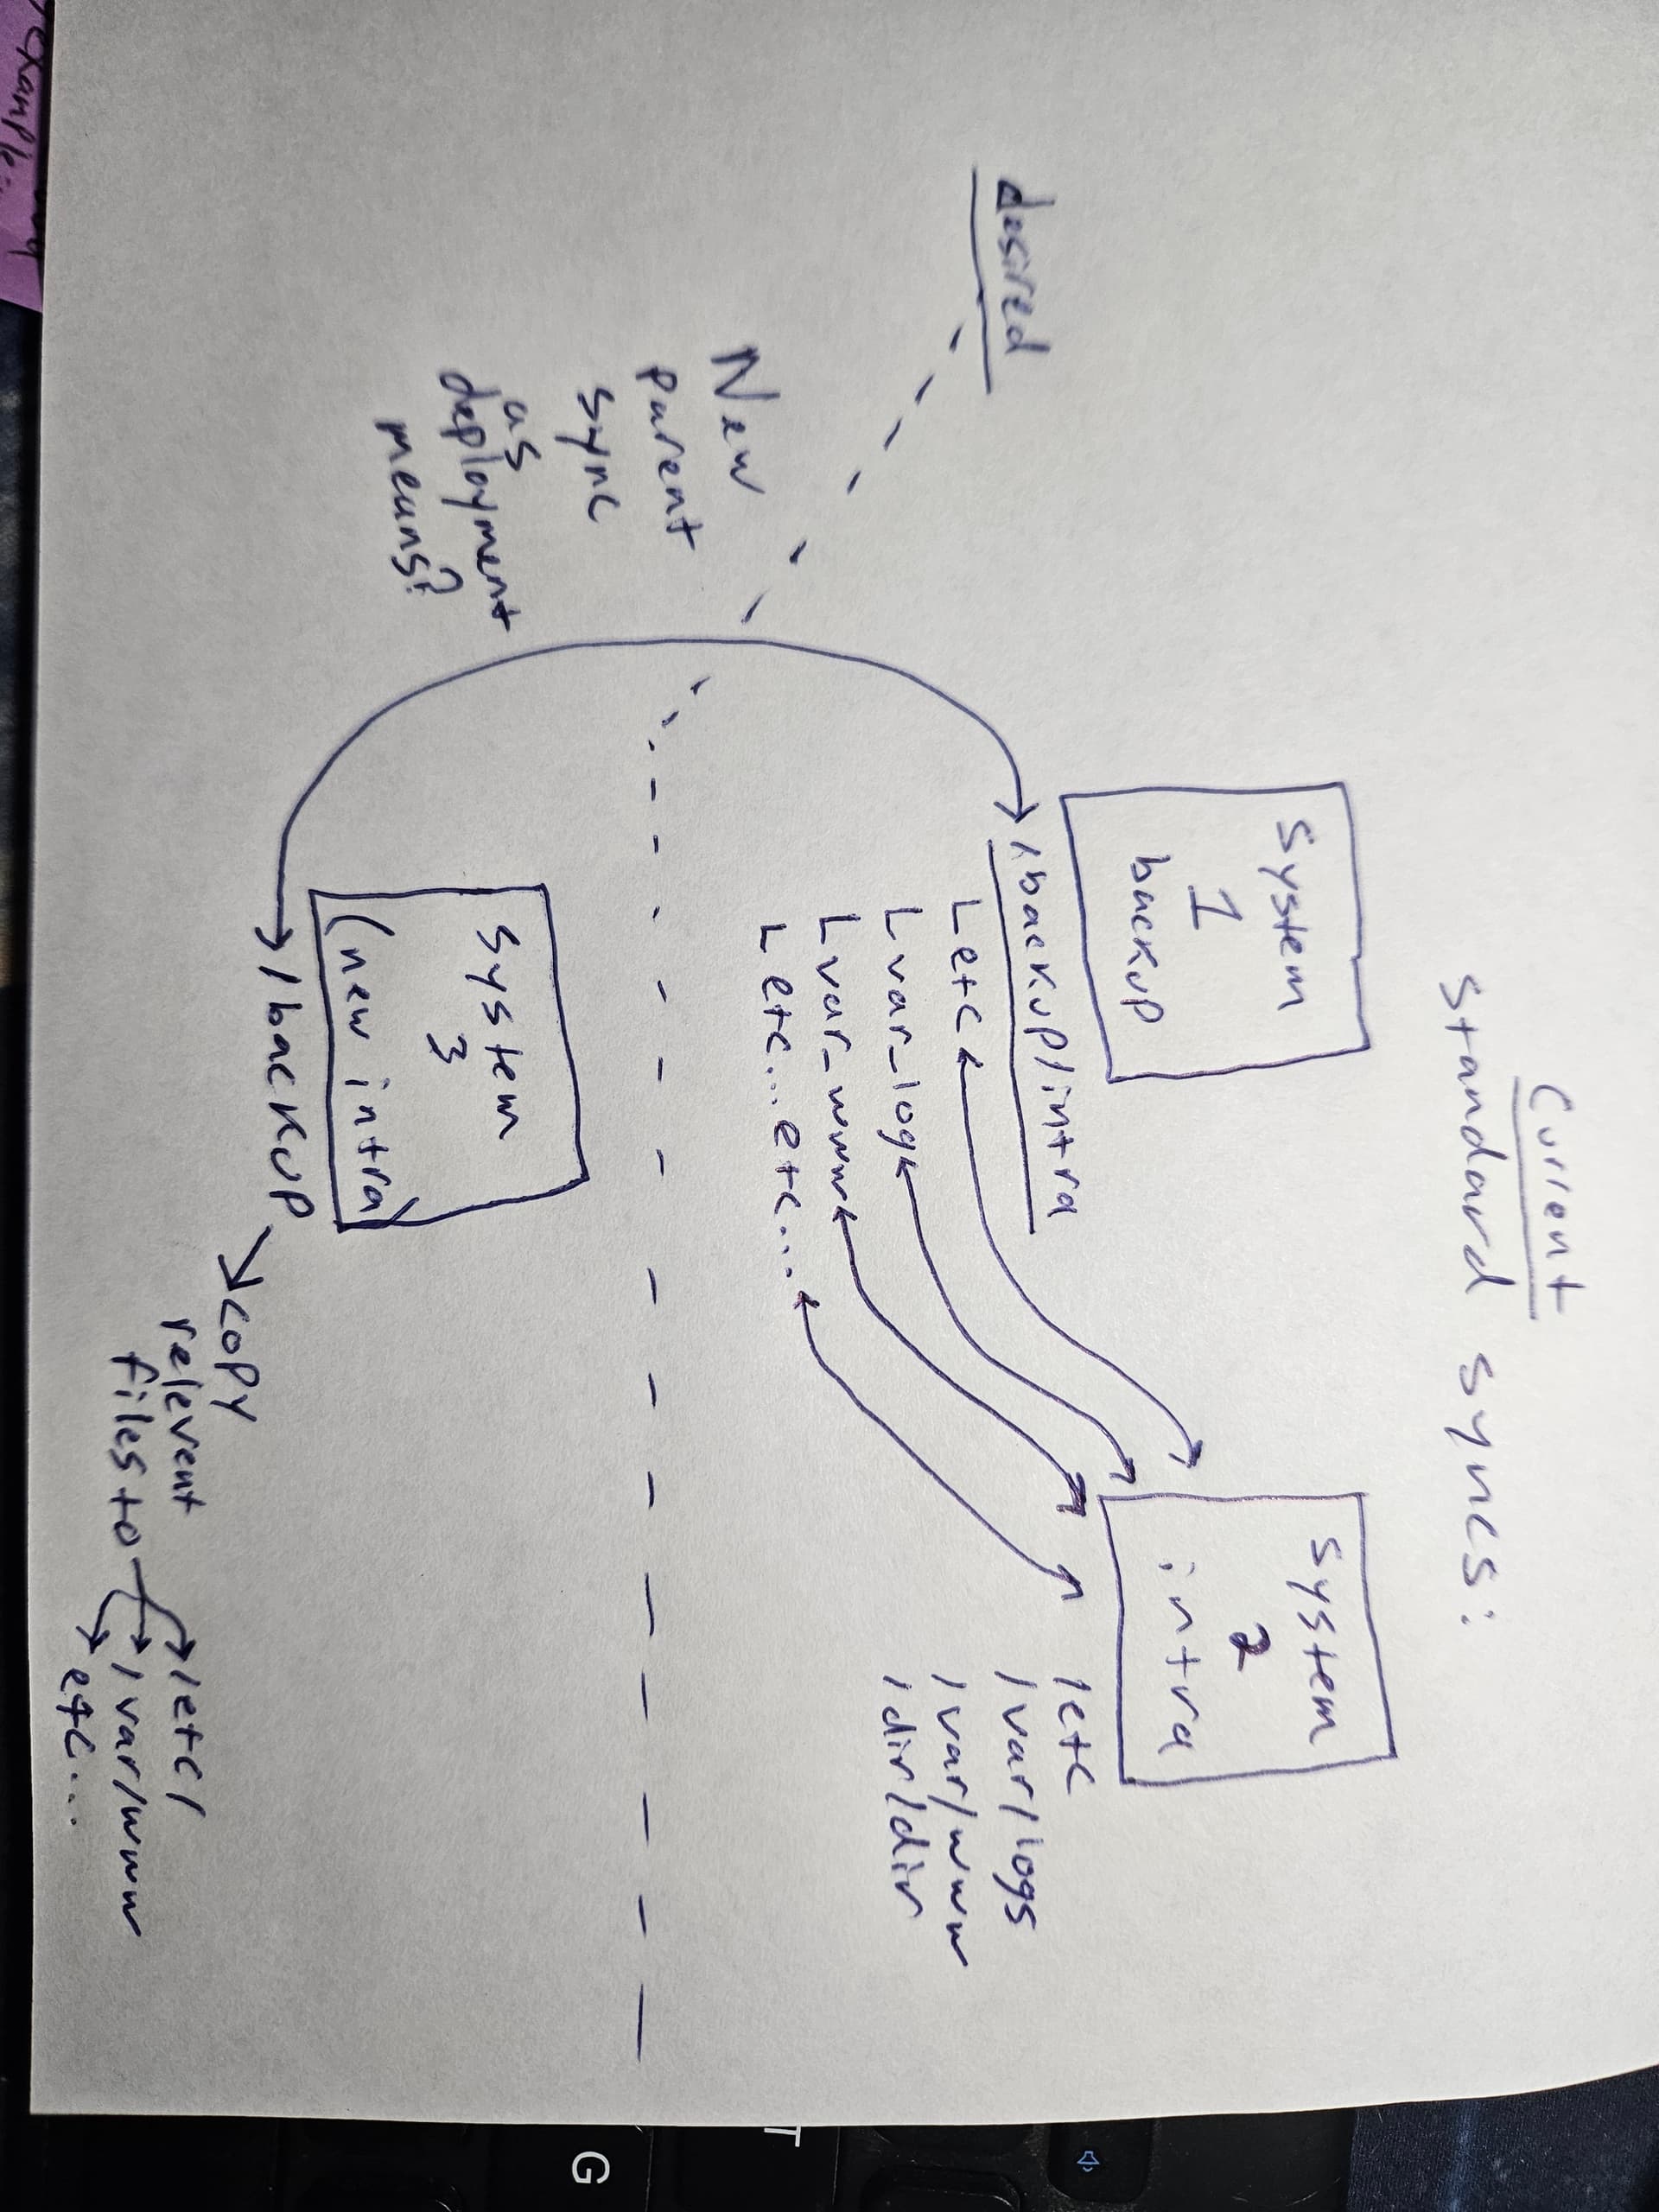 Current
Standard syncs:
System
1
backup
System
2
intra
/backup/intra
L etc
L var_log
L var_www
L etc... etc....
/etc
/var/logs
/var/www
/dir/dir
desired
New
parent
sync
as
deployment
means?
System
3
(new intra)
/backup
copy
relevent
files to
/etc/
/var/www
etc...
example:
T
G